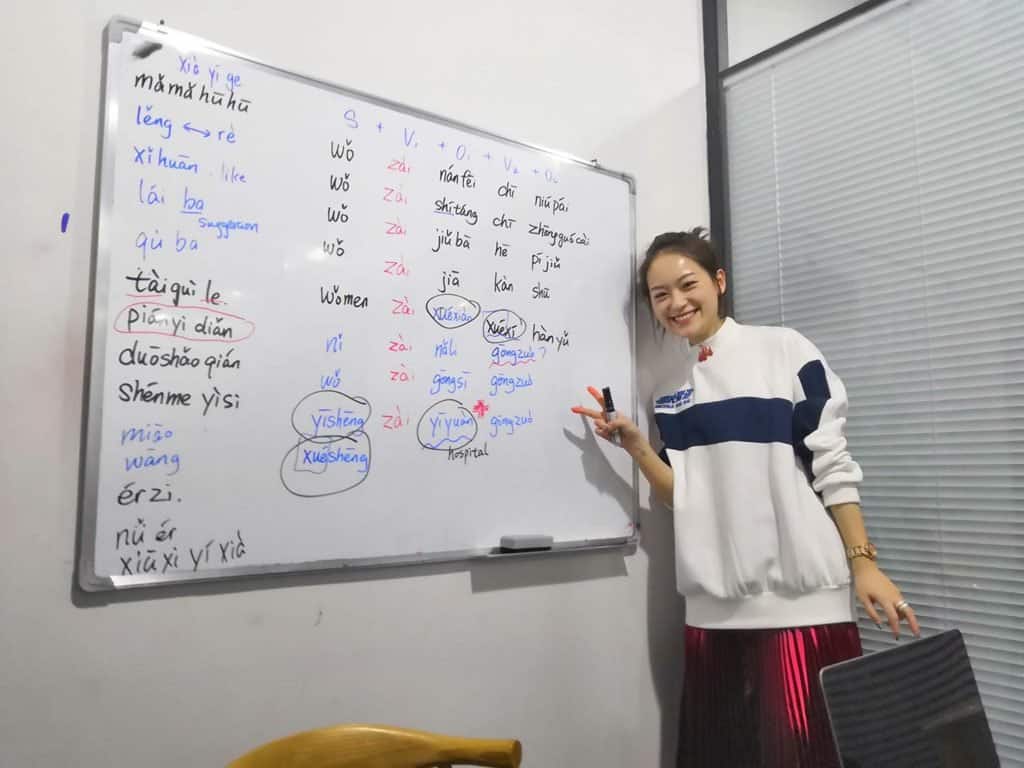 xià yí ge
mǎmǎhūhū
lěng ↔ rè
xǐhuān . like
lái ba
suggestion
qù ba
tài guì le.
piányì diǎn
duōshǎo qián
shénme yìsi
miāo
wāng
érzi.
nǚ ér
xiūxi yí xià
S + V₁ + O₁ + V₂ + O₂
wǒ zài nánfēi chī niúpái
wǒ zài shítáng chī zhōngguó cài
wǒ zài jiǔbā hē píjiǔ
wǒ zài jiā kàn shū
women zài xuéxiào xuéxí hànyǔ
nǐ zài nǎli gōngzuò?
wǒ zài gōngsī gōngzuò
yīshēng zài yīyuàn gōngzuò
hospital
xuéshēng